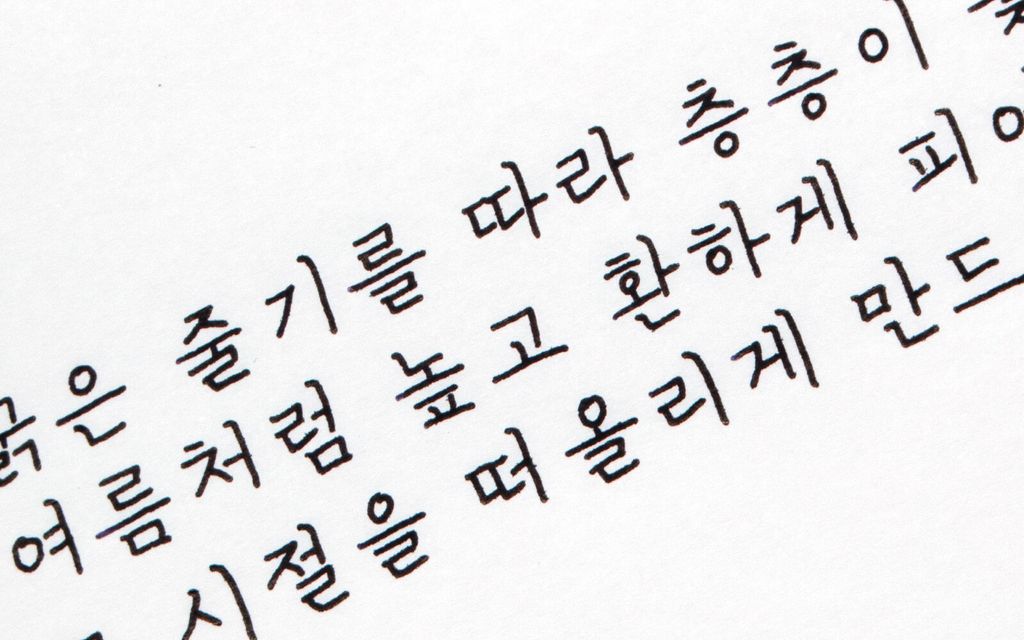 굵은 줄기를 따라 층층이
여름처럼 높고 환하게 피어
시절을 떠올리게 만드